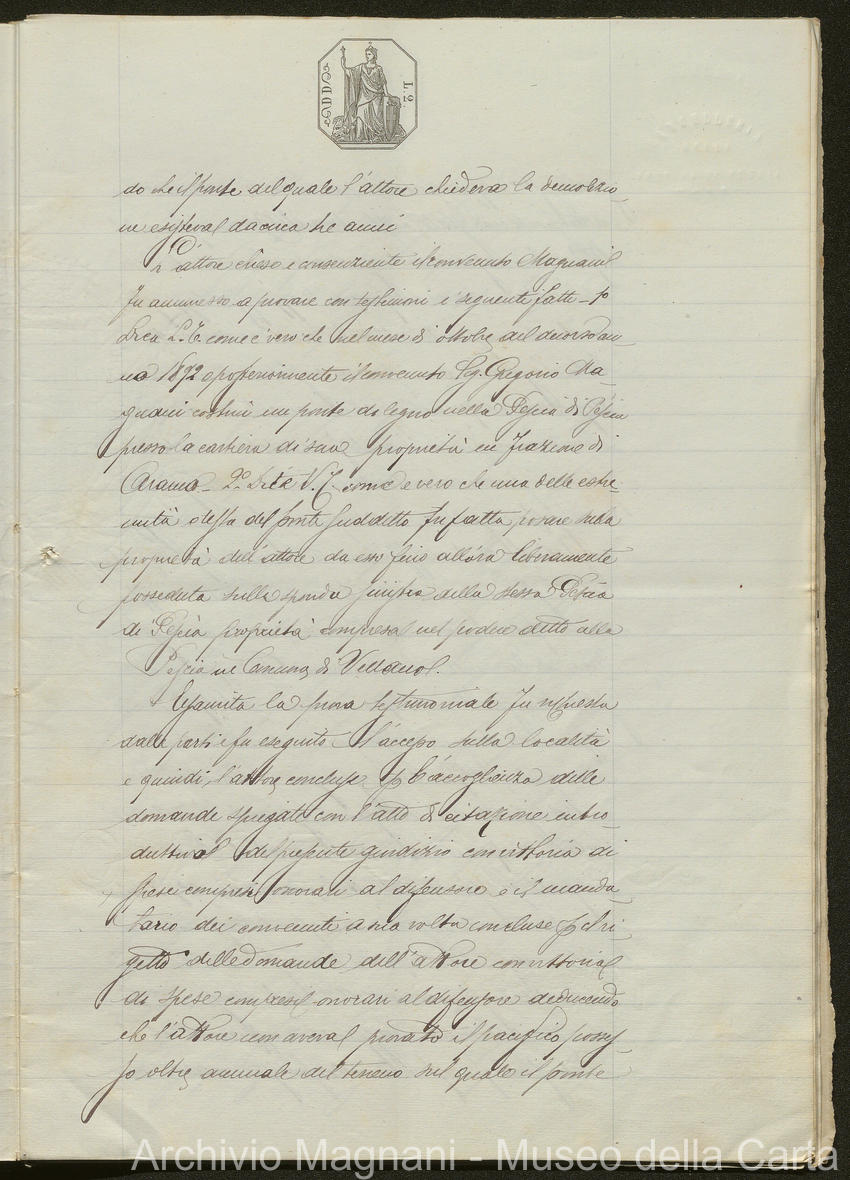 L. 2
do che il ponte del quale l'attore chiedeva la demolizio
ne esisteva da circa tre anni
L'attore stesso e consenziente il convenuto Magnani
fu ammesso a provare con testimoni i seguenti fatti - 1º
Dica I. T. come è vero che nel mese di ottobre del decorso an
no 1872 o posteriormente il convenuto Sig. Gregorio Ma-
gnani costruì un ponte di legno nella Pescia di Pescia
presso la cartiera di sua proprietà in frazione di
- 2º Dica I. T. come è vero che una delle estre-
mità o testa del ponte suddetto fu fatta posare sulla
proprietà dell'attore da esso fino allora liberamente
posseduta sulla sponda sinistra della stessa Pescia
di Pescia proprietà compresa nel podere detto alla
Pescia in Comune di Vellano.
Esaurita la prova testimoniale fu richiesto
dalle parti e fu eseguito l'accesso sulla località
e quindi l'attore concluse p l'accoglienza delle
domande spiegate con l'atto di citazione intro-
duttivo del presente giudizio con vittoria di
spese compresi onorari al difensore e il manda-
tario dei convenuti a sua volta concluse p il ri-
getto delle domande dell'attore con vittoria
di spese compresi onorari al difensore deducendo
che l'attore non aveva provato il pacifico posses-
so oltre annuale del terreno sul quale il ponte
Archivio Magnani - Museo della Carta